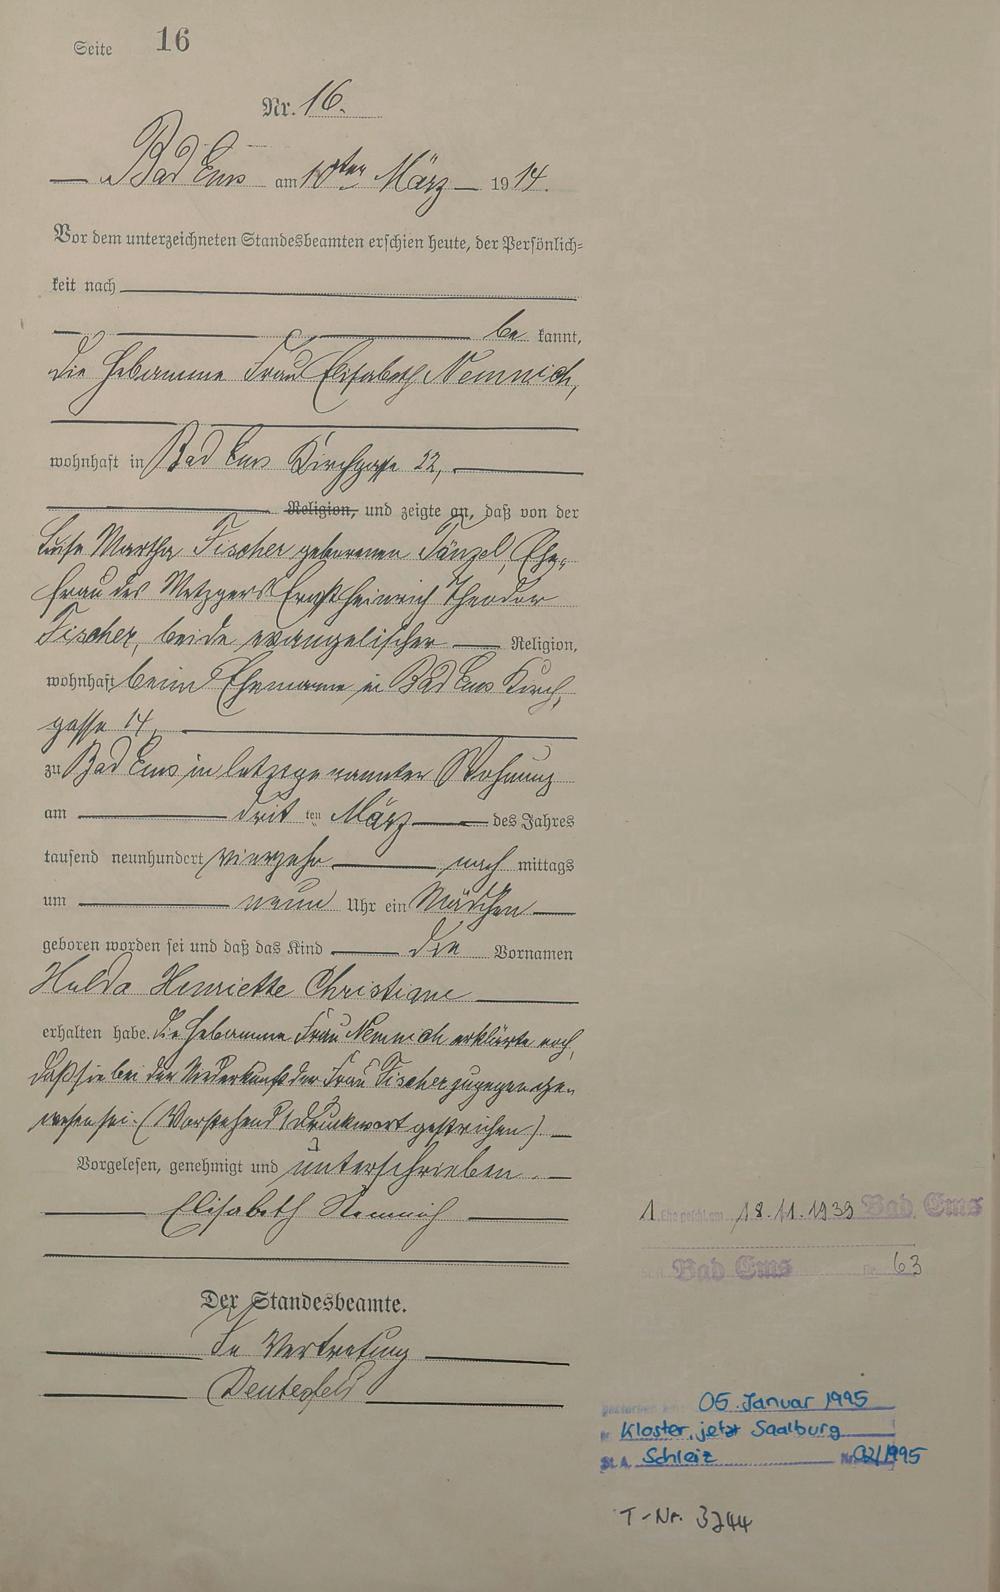 Seite 16
Nr. 16.
Bad Ems am 10ter März 1914.
Vor dem unterzeichneten Standesbeamten erschien heute, der Persönlich-
keit nach
be kannt,
die Hebamme Frau Elisabeth Nemnich,
wohnhaft in Bad Ems Kirchgasse 22,
Religion, und zeigte an, daß von der
Luise Martha Fischer geborenen Tänzel, Ehe-
frau des Metzgers Ernst Heinrich Theodor
Fischer, beide evangelischer Religion,
wohnhaft beim Ehemanne in Bad Ems Kirch-
gasse 14,
zu Bad Ems in letztgenannter Wohnung
am dritten März des Jahres
tausend neunhundert vierzehn nach mittags
um neun Uhr ein Mädchen
geboren worden sei und daß das Kind die Vornamen
Hulda Henriette Christiane
erhalten habe. Die Hebamme Frau Nemnich erklärte noch,
daß sie bei der Niederkunft der Frau Fischer zugegen ge-
wesen sei. (Vorstehend 1 Druckwort gestrichen).
Vorgelesen, genehmigt und unterschrieben.
Elisabeth Nemnich
Der Standesbeamte.
In Vertretung
1. Eheschl. am 18.11.1939 Bad Ems
Bad Ems Nr. 63
05. Januar 1995
Kloster, jetzt Saalburg
St.A. Schleiz Nr. 02/1995
T-Nr. 3744